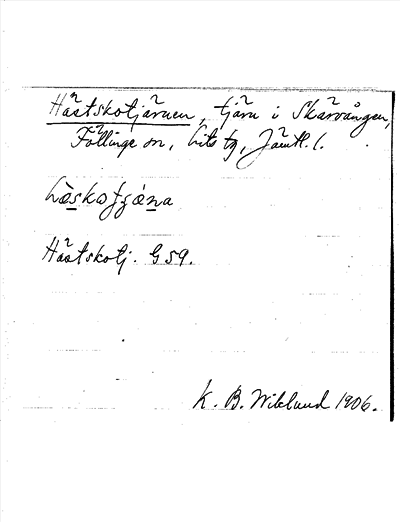 Hästskotjärnen, tjärn i Skärvången,
Föllinge sn, Lits tg, Jämtl. l.
Hästskotj. G 59.
K. B. Wiklund 1906.